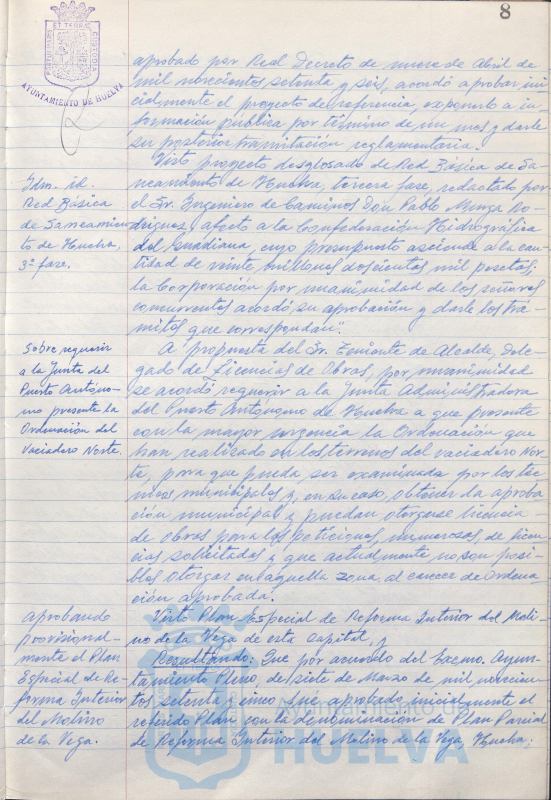 8
PORTUS MARIS ET TERRAE CUSTODIA
AYUNTAMIENTO DE HUELVA
aprobado por Real Decreto de nueve de Abril de
mil novecientos setenta y seis, acordó aprobar ini-
cialmente el proyecto de referencia, exponerlo a in-
formación pública por término de un mes y darle
su posterior tramitación reglamentaria.
Idm. id.
Red Básica
de Saneamien-
to de Huelva,
3ª fase.
Visto proyecto desglosado de Red Básica de Sa-
neamiento de Huelva, tercera fase, redactado por
el Sr. Ingeniero de Caminos Don Pablo Ro-
dríguez, afecto a la Confederación Hidrográfica
del Guadiana, cuyo presupuesto asciende a la can-
tidad de veinte millones doscientas mil pesetas:
la Corporación por unanimidad de los señores
concurrentes acordó su aprobación y darle los trá-
mites que correspondan.
Sobre requerir
a la Junta del
Puerto Autóno-
mo presente la
Ordenación del
Vaciadero Norte.
A propuesta del Sr. Teniente de Alcalde, Dele-
gado de Licencias de Obras, por unanimidad
se acordó requerir a la Junta Administradora
del Puerto Autónomo de Huelva a que presente
con la mayor urgencia la Ordenación que
han realizado en los terrenos del vaciadero Nor-
te, para que pueda ser examinada por los téc-
nicos municipales y, en su caso, obtener la aproba-
ción municipal y puedan otorgarse licencia
de obras para las peticiones, numerosas, de licen-
cias solicitadas y que actualmente no son posi-
bles otorgar en aquella zona, al carecer de Ordena-
ción aprobada.
Aprobando
provisional-
mente el Plan
Especial de Re-
forma Interior
del Molino
de la Vega.
Visto Plan Especial de Reforma Interior del Moli-
no de la Vega de esta capital, y
Resultando: Que por acuerdo del Excmo. Ayun-
tamiento Pleno, de siete de Marzo de mil novecien-
tos setenta y cinco fué aprobado inicialmente el
referido Plan con la denominación de Plan Parcial
de Reforma Interior del Molino de la Vega, Huelva;
Ayuntamiento de
HUELVA